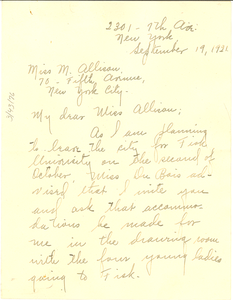 2201 - 7th Ave.
New York
September 19, 1921
Miss M. Allison,
70 - Fifth Avenue,
New York City.
My dear Miss Allison:
As I am planning
to leave the city for Fisk
University on the second of
October, Miss Du Bois ad-
vised that I write you
and ask that accommo-
dations be made for
me in the drawing room
with the four young ladies
going to Fisk.